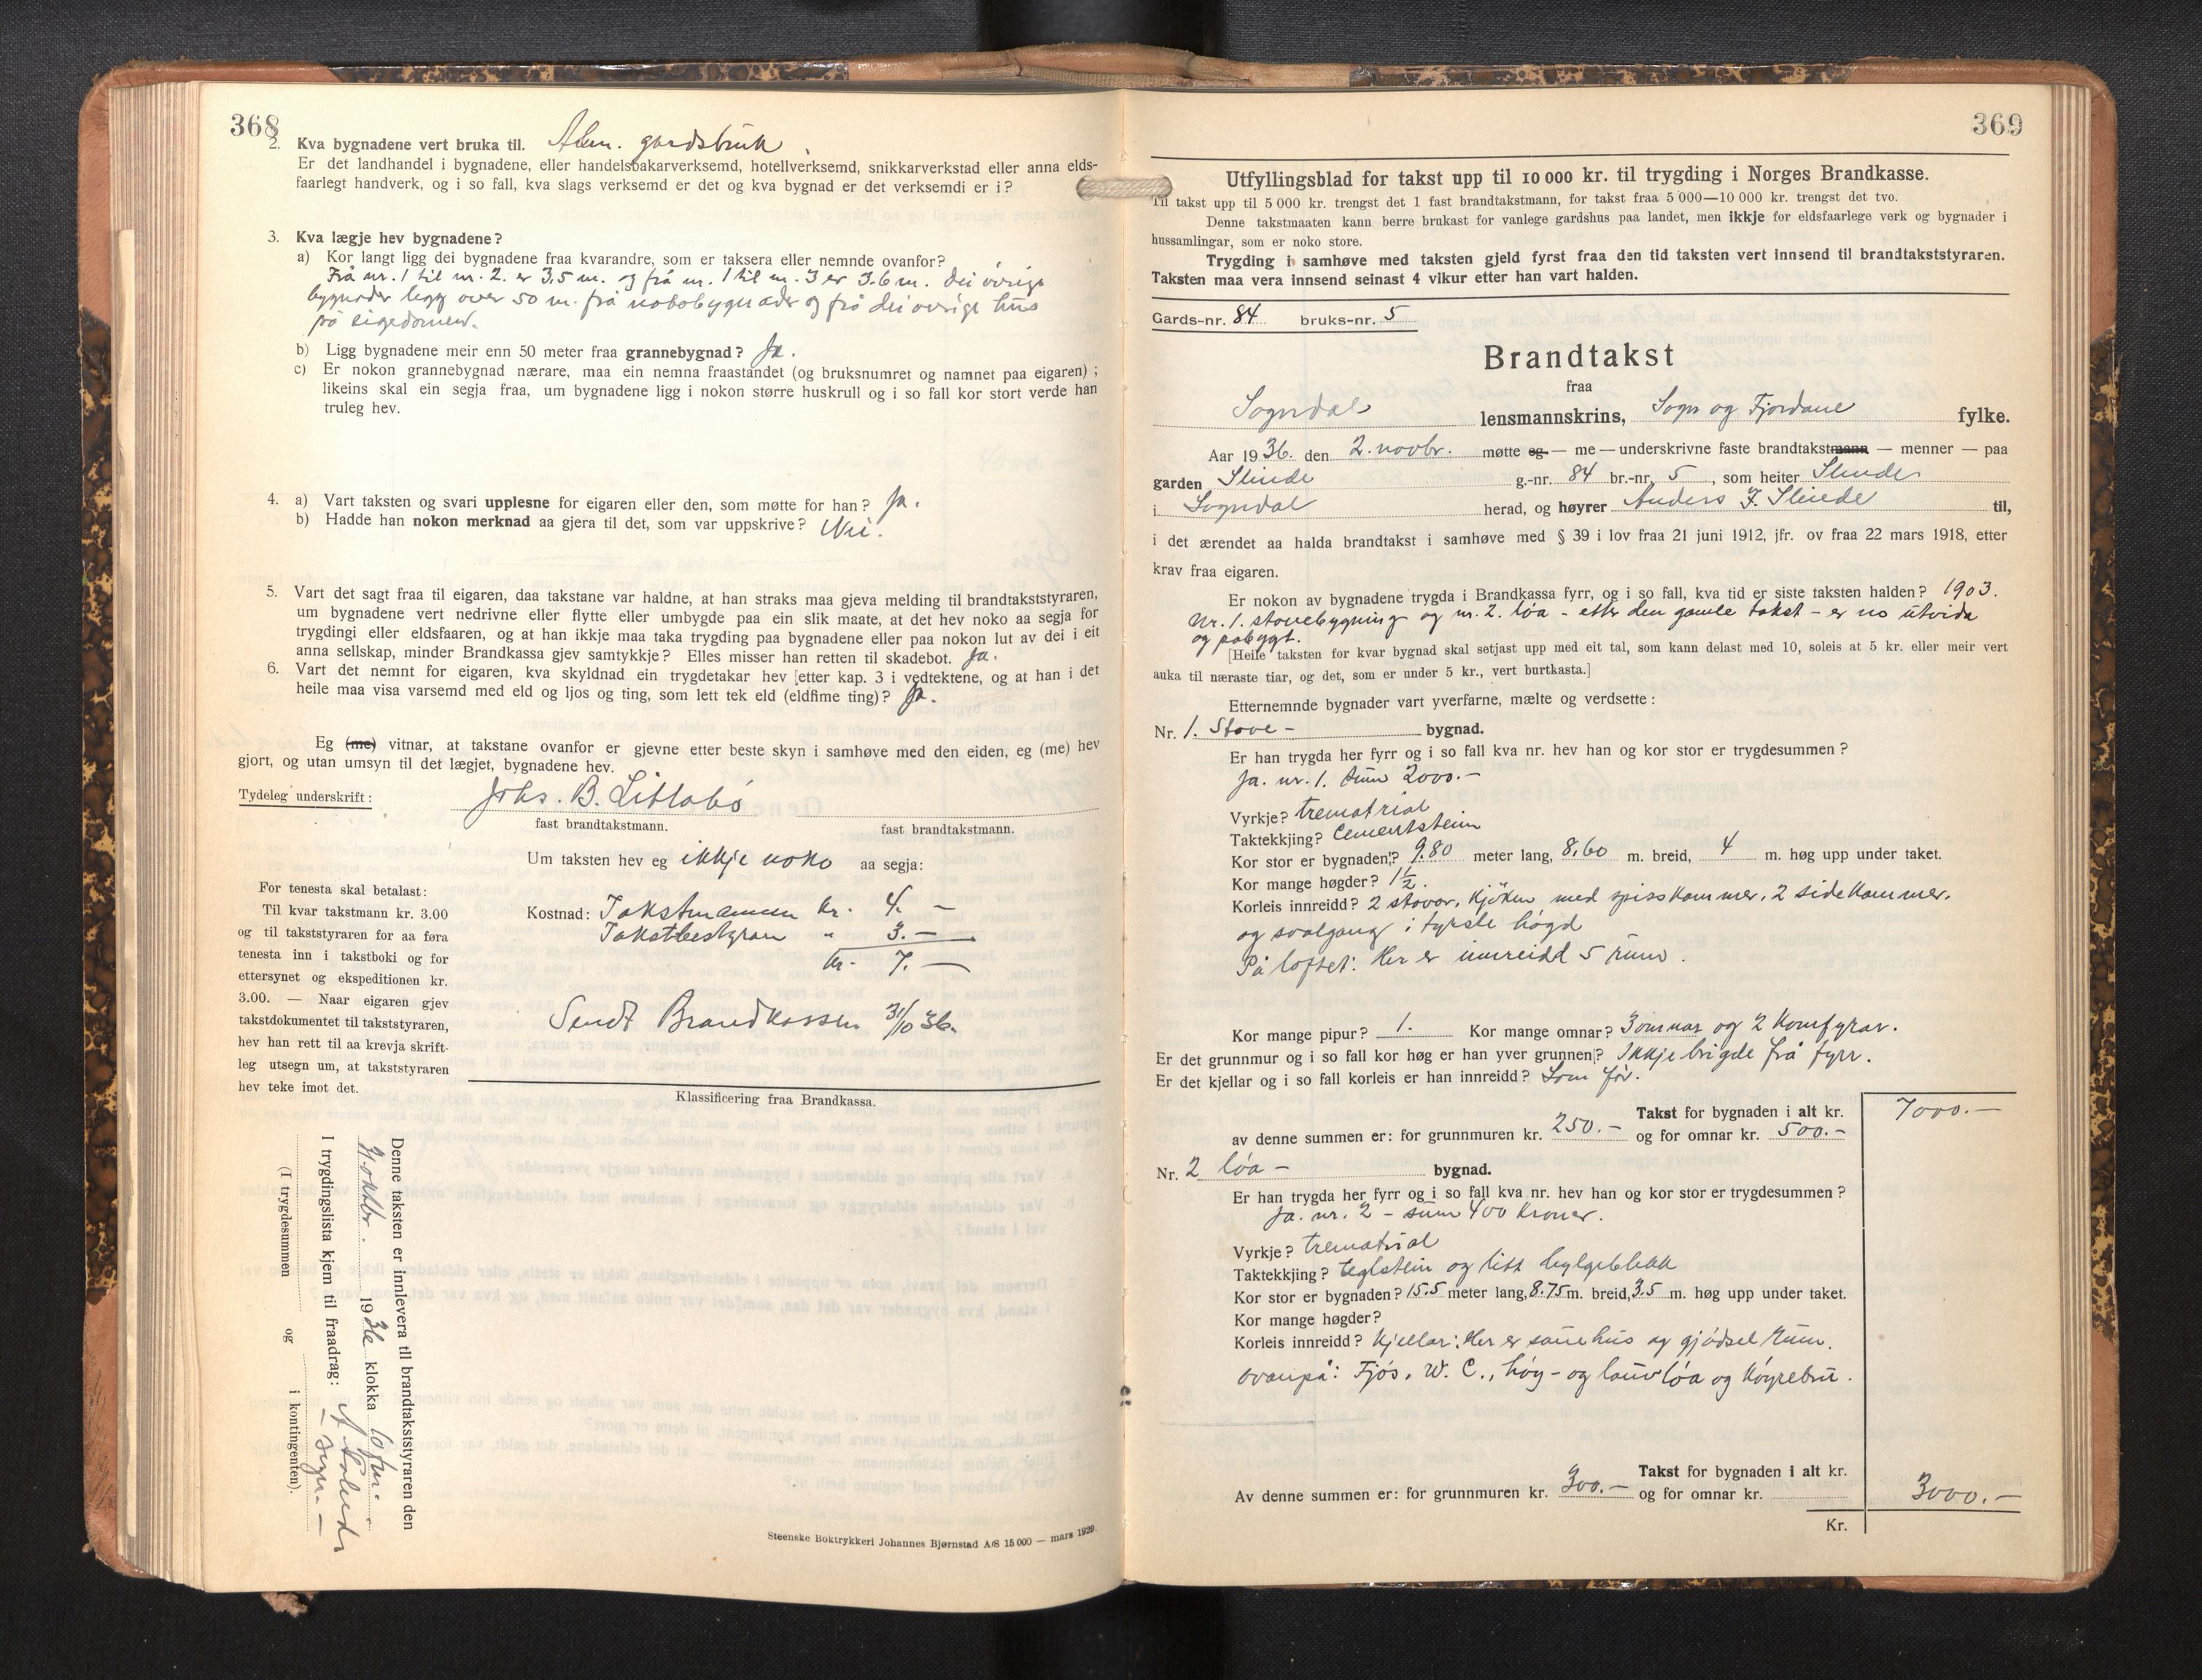 368
2. Kva bygnadene vert bruka til. Alm. gardsbruk
Er det landhandel i bygnadene, eller handelsbakarverksemd, hotellverksemd, snikkarverkstad eller anna elds-
faarlegt handverk, og i so fall, kva slags verksemd er det og kva bygnad er det verksemdi er i?
3. Kva lægje hev bygnadene?
a) Kor langt ligg dei bygnadene fraa kvarandre, som er taksera eller nemnde ovanfor?
Frå nr. 1 til nr. 2. er 3,5 m. og frå nr. 1 til nr. 3 er 3.6 m. Dei övrige
bygnader ligg over 50 m. frå nabobygnader og frå dei övrige hus
på eigedomen.
b) Ligg bygnadene meir enn 50 meter fraa grannebygnad? Ja.
c) Er nokon grannebygnad nærare, maa ein nemna fraastandet (og bruksnumret og namnet paa eigaren) ;
likeins skal ein segja fraa, um bygnadene ligg i nokon større huskrull og i so fall kor stort verde han
truleg hev.
4. a) Vart taksten og svari upplesne for eigaren eller den, som møtte for han? Ja.
b) Hadde han nokon merknad aa gjera til det, som var uppskrive? Nei.
5. Vart det sagt fraa til eigaren, daa takstane var haldne, at han straks maa gjeva melding til brandtakststyraren,
um bygnadene vert nedrivne eller flytte eller umbygde paa ein slik maate, at det hev noko aa segja for
trygdingi eller eldsfaaren, og at han ikkje maa taka trygding paa bygnadene eller paa nokon lut av dei i eit
anna sellskap, minder Brandkassa gjev samtykkje? Elles misser han retten til skadebot. Ja.
6. Vart det nemnt for eigaren, kva skyldnad ein trygdetakar hev etter kap. 3 i vedtektene, og at han i det
heile maa visa varsemd med eld og ljos og ting, som lett tek eld (eldfime ting)? Ja.
Eg (me) vitnar, at takstane ovanfor er gjevne etter beste skyn i samhøve med den eiden, eg (me) hev
gjort, og utan umsyn til det lægjet, bygnadene hev.
Tydeleg underskrift: Johs. B. Littabö
fast brandtakstmann. fast brandtakstmann.
Um taksten hev eg ikkje noko aa segja:
For tenesta skal betalast:
Til kvar takstmann kr. 3.00
og til takststyraren for aa føra
tenesta inn i takstboki og for
ettersynet og ekspeditionen kr.
3.00. — Naar eigaren gjev
takstdokumentet til takststyraren,
hev han rett til aa krevja skrift-
leg utsegn um, at takststyraren
hev teke imot det.
Kostnad: Takstmannen kr. 4. —
Takstbestyraren " 3. —
kr. 7. —
Sendt Brandkassen 31/10 36.
Klassificering fraa Brandkassa.
Denne taksten er innlevera til brandtakststyraren den
oktbr. 1936 klokka
I trygdingslista kjem til fraadrag:
(I trygdesummen og i kontingenten).
Steenske Boktrykkeri Johannes Bjørnstad A/S 15 000 — mars 1929.
369
Utfyllingsblad for takst upp til 10 000 kr. til trygding i Norges Brandkasse.
Til takst upp til 5 000 kr. trengst det 1 fast brandtakstmann, for takst fraa 5 000—10 000 kr. trengst det tvo.
Denne takstmaaten kann berre brukast for vanlege gardshus paa landet, men ikkje for eldsfaarlege verk og bygnader i
hussamlingar, som er noko store.
Trygding i samhøve med taksten gjeld fyrst fraa den tid taksten vert innsend til brandtakststyraren.
Taksten maa vera innsend seinast 4 vikur etter han vart halden.
Gards-nr. 84 bruks-nr. 5
Brandtakst
fraa
Sogndal lensmannskrins, Sogn og Fjordane fylke.
Aar 1936. den 2. novbr. møtte eg — me — underskrivne faste brandtakstmann — menner — paa
garden Slinde g.-nr. 84 br.-nr. 5, som heiter Slinde
i Sogndal herad, og høyrer Anders J. Slinde til,
i det ærendet aa halda brandtakst i samhøve med § 39 i lov fraa 21 juni 1912, jfr. ov fraa 22 mars 1918, etter
krav fraa eigaren.
Er nokon av bygnadene trygda i Brandkassa fyrr, og i so fall, kva tid er siste taksten halden? 1903.
Nr. 1. stovebygning og nr. 2. löa - etter den gamle takst - er no utvida
og påbygt.
[Heile taksten for kvar bygnad skal setjast upp med eit tal, som kann delast med 10, soleis at 5 kr. eller meir vert
auka til næraste tiar, og det, som er under 5 kr., vert burtkasta.]
Etternemnde bygnader vart yverfarne, mælte og verdsette:
Nr. 1. Stove - bygnad.
Er han trygda her fyrr og i so fall kva nr. hev han og kor stor er trygdesummen?
Ja. nr. 1. Sum 2000.-
Vyrkje? trematrial
Taktekkjing? Cementstein
Kor stor er bygnaden? 9.80 meter lang, 8,60 m. breid, 4 m. høg upp under taket.
Kor mange høgder? 1½.
Korleis innreidd? 2 stovor, kjöken med spisskammer, 2 sidekammer.
og svalgang i fyrste högd
På loftet: Her er innreidd 5 rum.
Kor mange pipur? 1. Kor mange omnar? 3 omnar og 2 komfyrar.
Er det grunnmur og i so fall kor høg er han yver grunnen? Ikkje brigde frå fyrr.
Er det kjellar og i so fall korleis er han innreidd? Som för.
Takst for bygnaden i alt kr. 7000.—
av denne summen er: for grunnmuren kr. 250.— og for omnar kr. 500.—
Nr. 2 löa - bygnad.
Er han trygda her fyrr og i so fall kva nr. hev han og kor stor er trygdesummen?
Ja. nr. 2 - sum 400 kroner.
Vyrkje? trematrial
Taktekkjing? teglstein og litt bylgeblekk
Kor stor er bygnaden? 15.5 meter lang, 8.75 m. breid, 3.5 m. høg upp under taket.
Kor mange høgder?
Korleis innreidd? Kjellar: Her er sauehus og gjödsel rum.
ovanpå: Fjös, W. C., höy- og lauvlöa og köyrebru.
Takst for bygnaden i alt kr.
Av denne summen er: for grunnmuren kr. 300.— og for omnar kr. 3000.—
Kr.